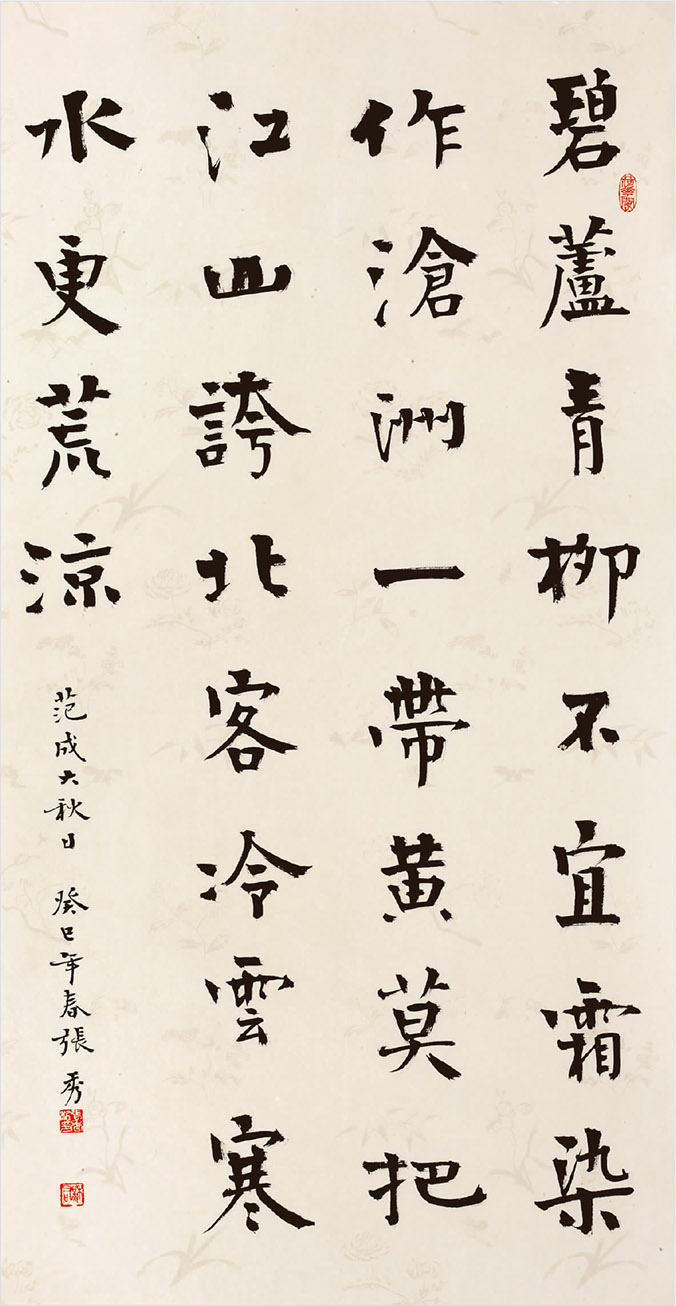 碧蘆青柳不宜霜染
作滄洲一帶黄莫把
江山誇北客冷雲寒
水更荒涼
范成大秋日 癸巳年春張秀